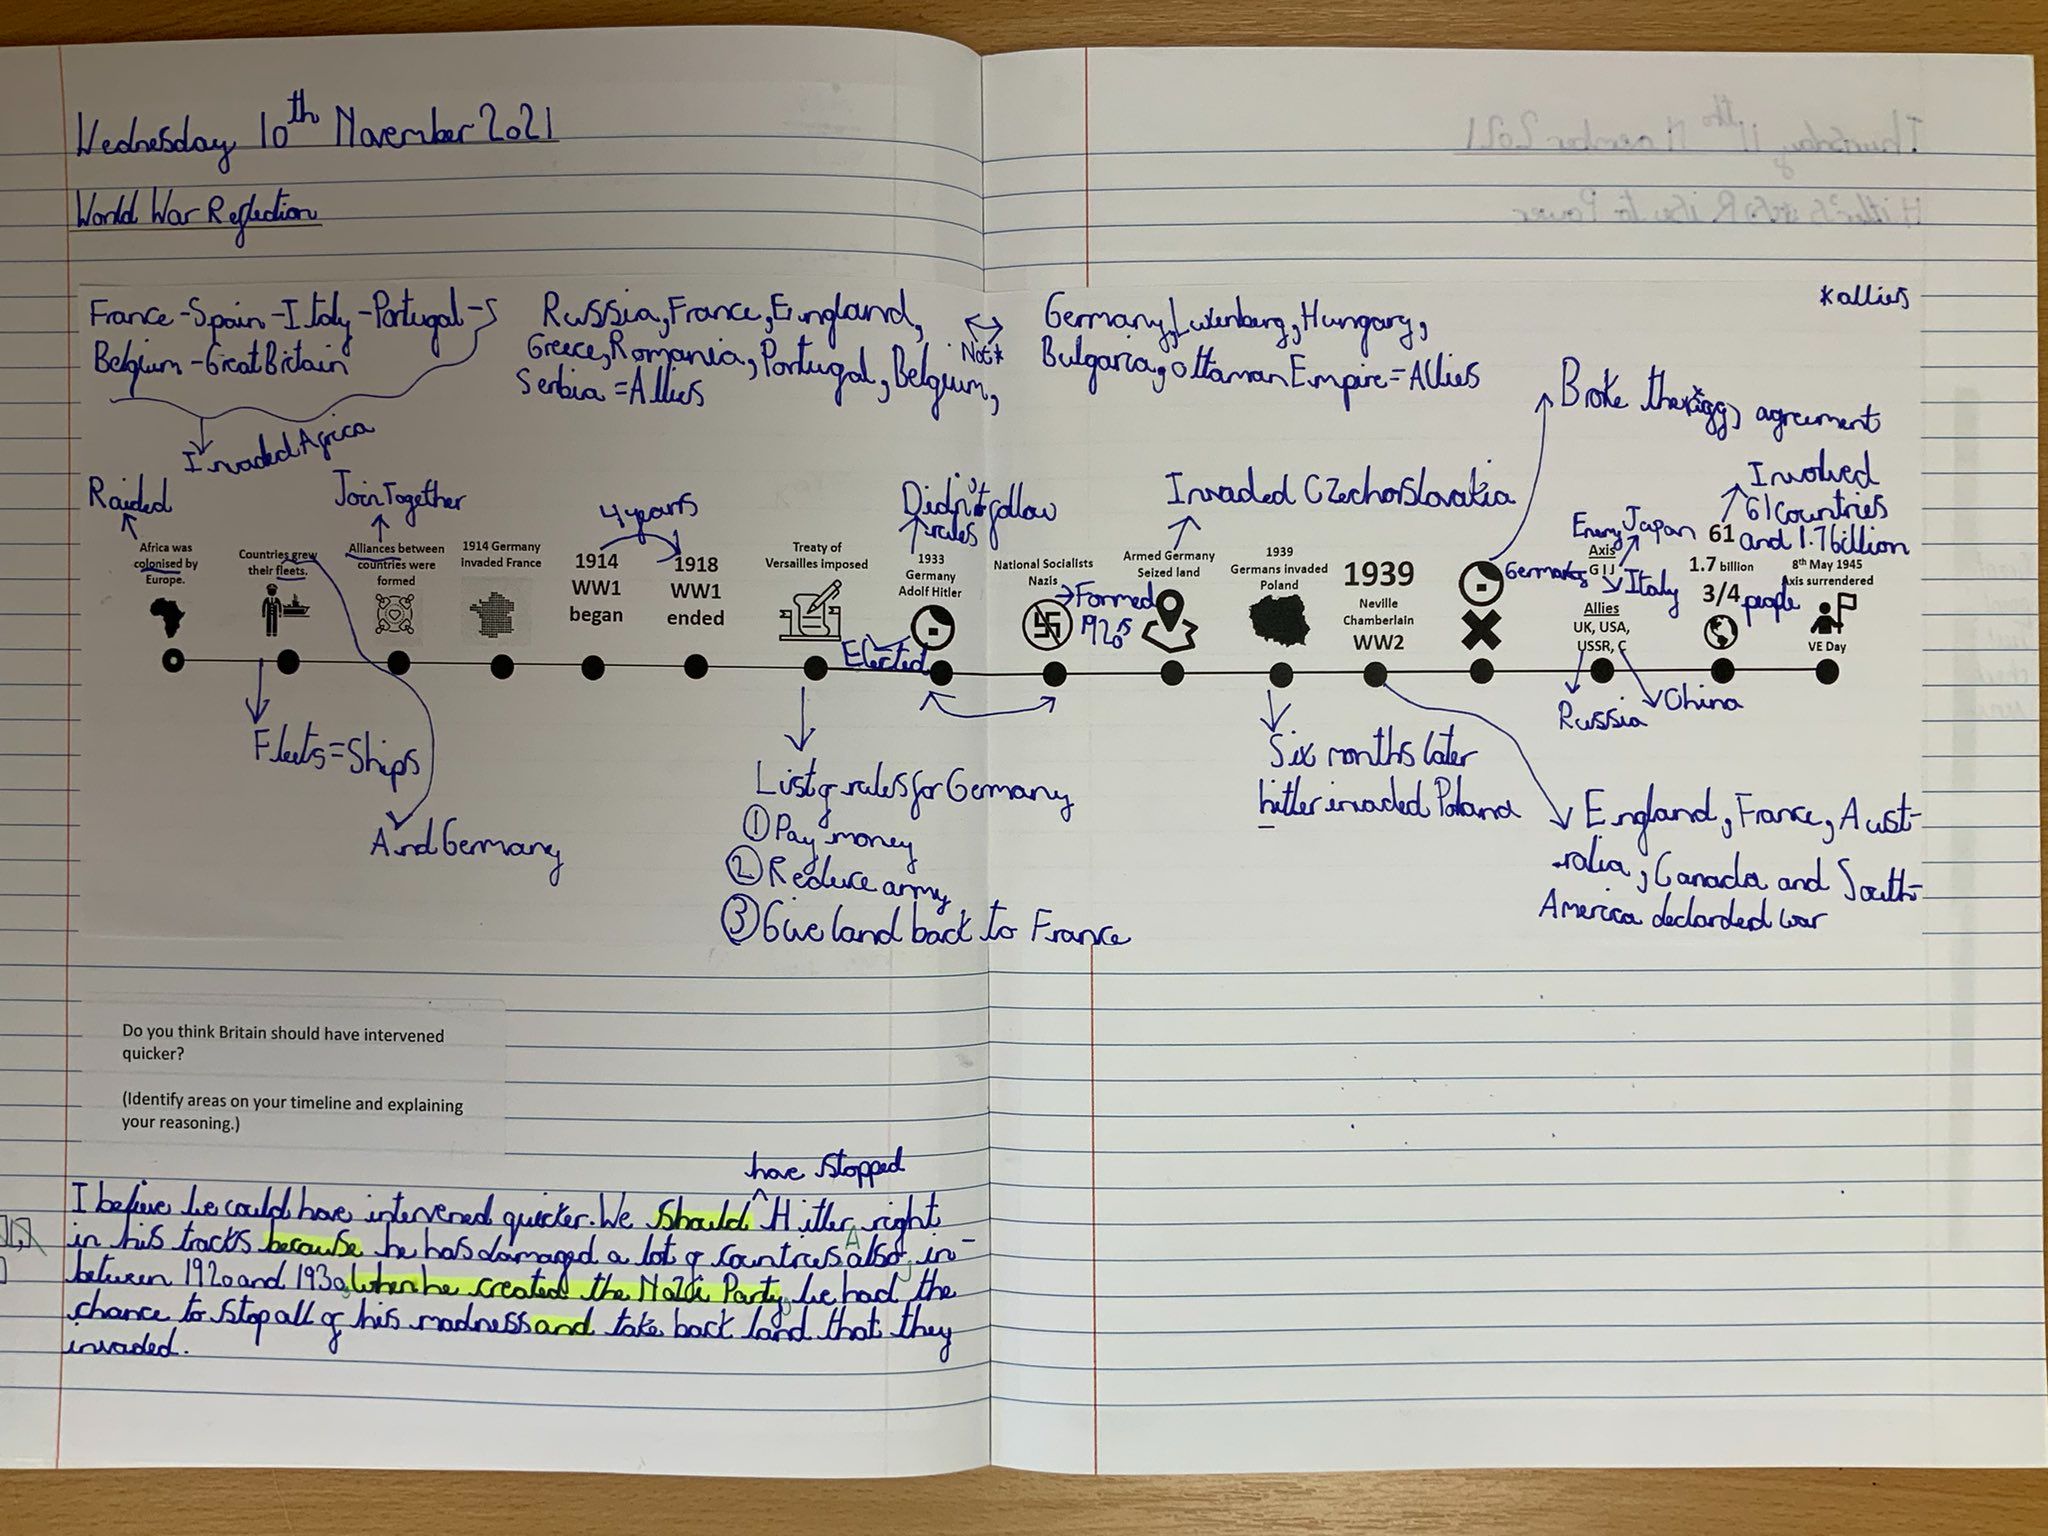 Wednesday 10th November 2021
World War Reflection
France-Spain-Italy-Portugal-
Belgium-Great Britain
Invaded Africa
Russia, France, England,
Greece, Romania, Portugal, Belgium,
Serbia = Allies
Not*
Germany, Luxenburg, Hungary,
Bulgaria, Ottaman Empire = Allies
*allies
Broke the agreement
Raided
Join Together
4 years
Didn't follow
rules
Invaded Czechorslovakia
Involved
61 Countries
and 1.7 billion
people
Africa was
colonised by
Europe.
Countries grew
their fleets.
Alliances between
countries were
formed
1914 Germany
invaded France
1914
WW1
began
1918
WW1
ended
Treaty of
Versailles imposed
1933
Germany
Adolf Hitler
Elected
National Socialists
Nazis
Formed
1920s
Armed Germany
Seized land
1939
Germans invaded
Poland
1939
Neville
Chamberlain
WW2
Enemy
Japan
Axis
G I J
Germany
Italy
Allies
UK, USA,
USSR, C
61
1.7 billion
3/4
8th May 1945
Axis surrendered
VE Day
Fleets = Ships
And Germany
List of rules for Germany
① Pay money
② Reduce army
③ Give land back to France
Six months later
hitler invaded Poland
Russia
China
England, France, Aust-
-ralia, Canada and South-
America declarded war
Do you think Britain should have intervened
quicker?
(Identify areas on your timeline and explaining
your reasoning.)
have stopped
I believe we could have intervened quicker. We should Hitler right
in his tracks because he has damaged a lot of countries also, in-
between 1920 and 1930, when he created the Nazi Party, we had the
chance to stop all of his madness and take back land that they
invaded.
Thursday 11th November 2021
Hitler's Rise to Power